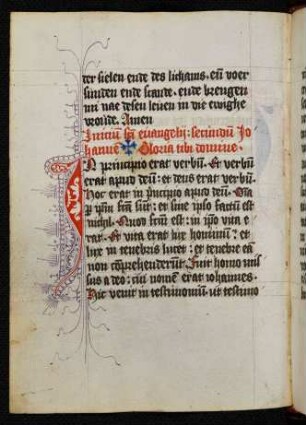 der sielen ende des lichams. eñ voer
sunden ende scande. ende brengen
mi nae desen leuen in die ewighe
vroude. Amen
Iniciū sc̄i euangelij: secundū Jo
hannē ✠ Gloria tibi domine.
IN principio erat verbū. Et verbū
erat apud deū: et deus erat verbū.
Hoc erat in principio apud deū. Oīa
p̄ ip̄m fc̄m sūt: et sine ip̄so factū est
nichil. Quod fc̄m est: in ip̄o vita e
rat. Et vita erat lux hominū: et
lux in tenebris lucet: et tenebre eā
non cōprehenderūt. Fuit homo mis
sus a deo: cui nomen erat iohannes.
Hic venit in testimoniū. ut testimo